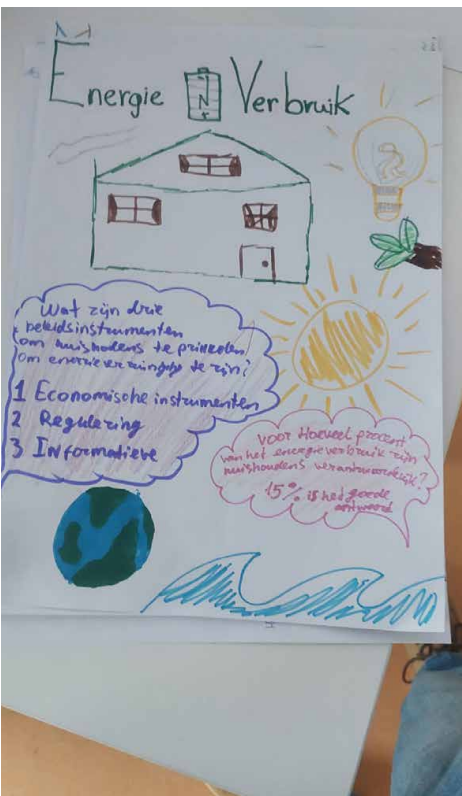 Energie Verbruik
Wat zijn drie
beleidsinstrumenten
om huishodens te prikkelen
om energiezuinig te zijn?
1 Economische instrumenten
2 Regulering
3 INformatieve
Voor Hoeveel procent
van het energieverbruik zijn
huishoudens verantwoordelijk?
15% is het goede
antwoord